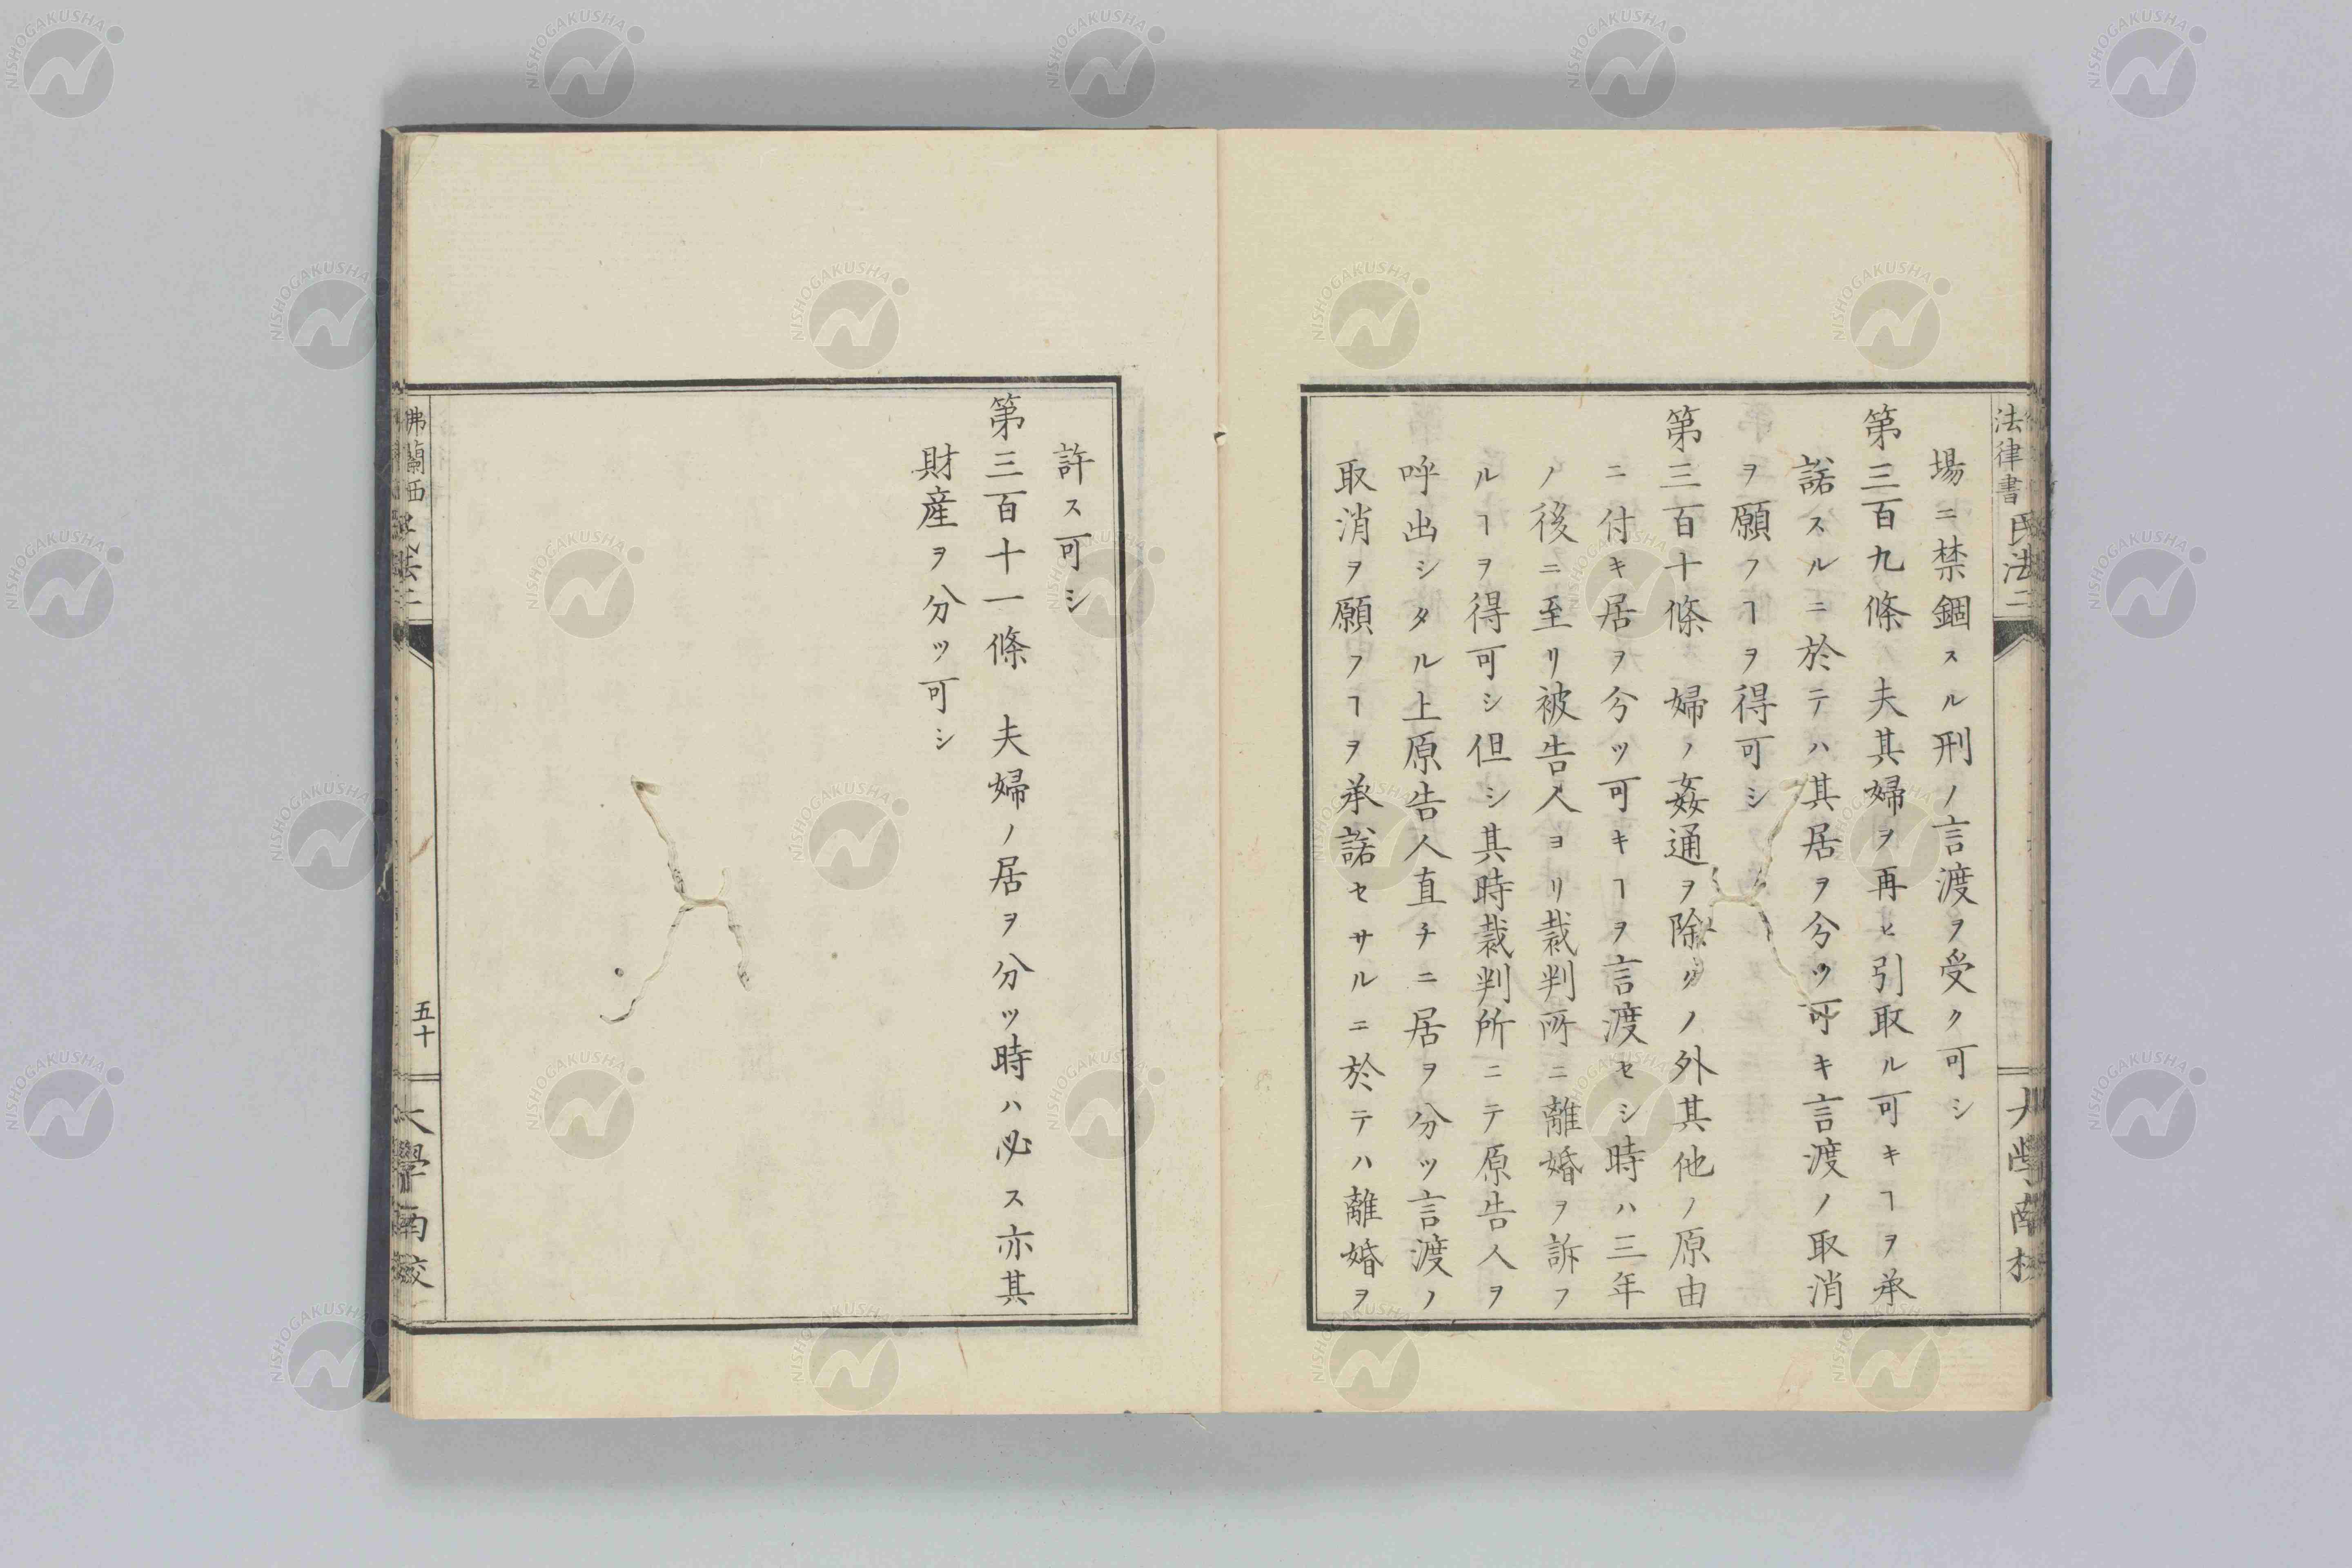 法律書 民法二
場ニ禁錮スル刑ノ言渡ヲ受ク可シ
第三百九條 夫其婦ヲ再ヒ引取ル可キヿヲ承
諾スルニ於テハ其居ヲ分ツ可キ言渡ノ取消
ヲ願フヿヲ得可シ
第三百十條 婦ノ姦通ヲ除クノ外其他ノ原由
ニ付キ居ヲ分ツ可キヿヲ言渡セシ時ハ三年
ノ後ニ至リ被告人ヨリ裁判所ニ離婚ヲ訴フ
ルヿヲ得可シ但シ其時裁判所ニテ原告人ヲ
呼出シタル上原告人直チニ居ヲ分ツ言渡ノ
取消ヲ願フヿヲ承諾セサルニ於テハ離婚ヲ
許ス可シ
第三百十一條 夫婦ノ居ヲ分ツ時ハ必ス亦其
財産ヲ分ツ可シ
佛蘭西 民法二
五十
大學南校
NISHOGAKUSHA